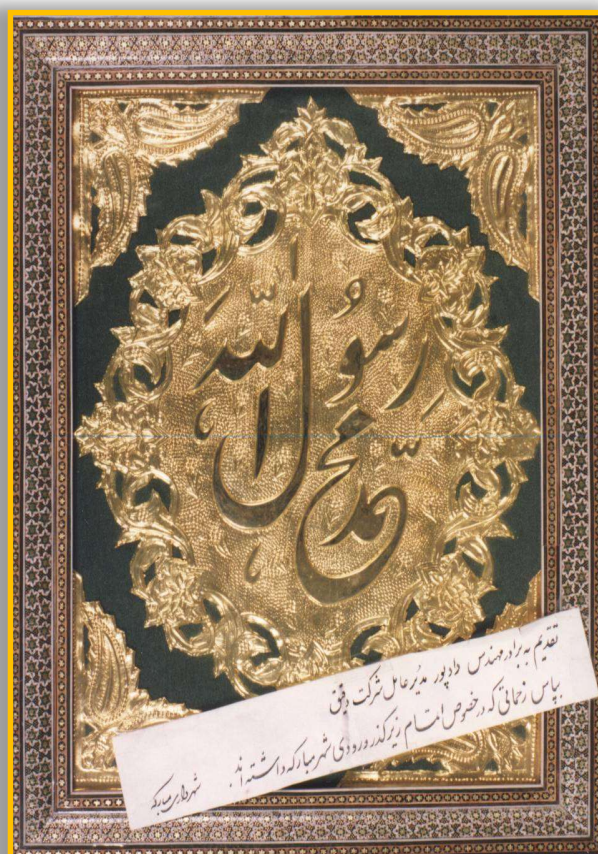 محمد رسول الله
تقدیم به برادر مهندس دادپور مدیر عامل شرکت دفتق
بپاس زحماتی که در خصوص اتمام زیر گذر ورودی شهر مبارکه داشته‌اند.
شهرداری مبارکه